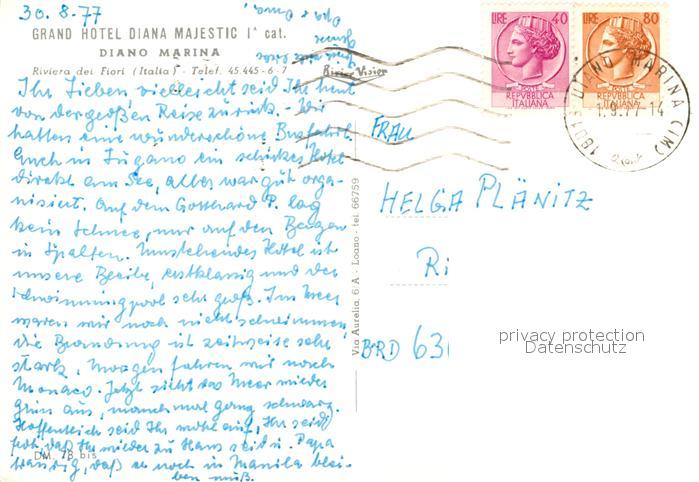 30.8.77
GRAND HOTEL DIANA MAJESTIC Iª cat.
DIANO MARINA
Riviera dei Fiori (Italia) - Telef. 45.445-6-7
Ihr Lieben vielleicht seid Ihr heut
von der großen Reise zurück. - Wir
hatten eine wunderschöne Busfahrt
auch in Lugano ein schickes Hotel
direkt am See, alles war gut orga-
nisiert. Auf dem Gotthard P. lag
kein Schnee, nur auf den Bergen
in Spalten. Umstehendes Hotel ist
unsere Bleibe, erstklassig und der
Schwimmingpool sehr groß. Im Meer
waren wir noch nicht schwimmen,
die Brandung ist zeitweise sehr
stark, Morgen fahren wir nach
Monaco. Jetzt sieht das Meer wieder
grün aus, manchmal ganz schwarz.
Hoffentlich seid Ihr wohl auf, Ihr seid
froh, daß Ihr wieder zu Haus seid u. Papa
traurig, daß er noch in Manila blei-
ben muß.
Opa u Oma.
DM. 78 bis
Via Aurelia, 6 A - Loano - tel. 66759
LIRE 40
REPVBBLICA
ITALIANA
LIRE 80
REPVBBLICA
ITALIANA
18013 DIANO MARINA (IM)
1.9.77-14
FRAU
HELGA PLÄNITZ
Ri
BRD 63
privacy protection
Datenschutz